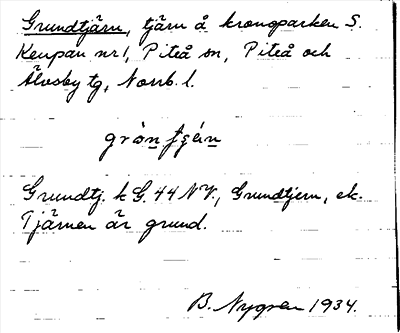 Grundtjärn, tjärn å kronoparken S.
Keupan nr 1, Piteå sn, Piteå och
Älvsby tg, Norrb. l.
Grundtj. k G. 44 NV., Grundtjern, ek.
Tjärnen är grund.
B. Nygren 1934.